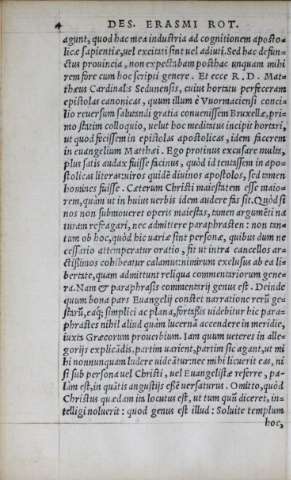 4 DES. ERASMI ROT.
agunt, quod hac mea industria ad cognitionem aposto-
licæ sapientiæ, uel excitati sint uel adiuti. Sed hac defun-
ctus prouincia, non expectabam posthac unquam mihi
rem fore cum hoc scripti genere. Et ecce R. D. Mat-
thæus Cardinalis Sedunensis, cuius hortatu perfeceram
epistolas canonicas, quum illum è Vuormaciensi conci-
lio reuersum salutandi gratia conuenissem Bruxellæ, pri-
mo statim colloquio, uelut hoc meditatus incipit hortari,
ut quod fecissem in epistolis apostolicis, idem facerem
in euangelium Matthæi. Ego protinus excusare multa,
plus satis audax fuisse facinus, quòd id tentassem in apo-
stolicas literas: uiros quidẽ diuinos apostolos, sed tamen
homines fuisse. Cæterum Christi maiestatem esse maio-
rem, quàm ut in huius uerbis idem audere fas sit. Quòd si
nos non submoueret operis maiestas, tamen argumẽti na
turam refragari, nec admittere paraphrasten: non tan-
tum ob hoc, quòd hic uariæ sint personæ, quibus dum ne
cessario attemperatur oratio, fit ut intra cancellos ar-
ctissimos cohibeatur calamus: nimirum exclusus ab ea li-
bertate, quam admittunt reliqua commentariorum gene-
ra. Nam & paraphrasis commentarij genus est. Deinde
quum bona pars Euangelij constet narratione rerũ ge-
starũ, eaq́; simplici ac plana, fortassis uidebitur hic para-
phrastes nihil aliud quàm lucernã accendere in meridie,
iuxta Græcorum prouerbium. Iam quum ueteres in alle-
gorijs explicãdis, partim uarient, partim sic agant, ut mi
hi nonnunquam ludere uideãtur: nec mihi licuerit eas, ni
si sub persona uel Christi, uel Euangelistæ referre, pa-
làm est, in quãtis angustijs esse uersaturus. Omitto, quòd
Christus quædam in locutus est, ut tum quũ diceret, in-
telligi noluerit: quod genus est illud: Soluite templum
hoc,